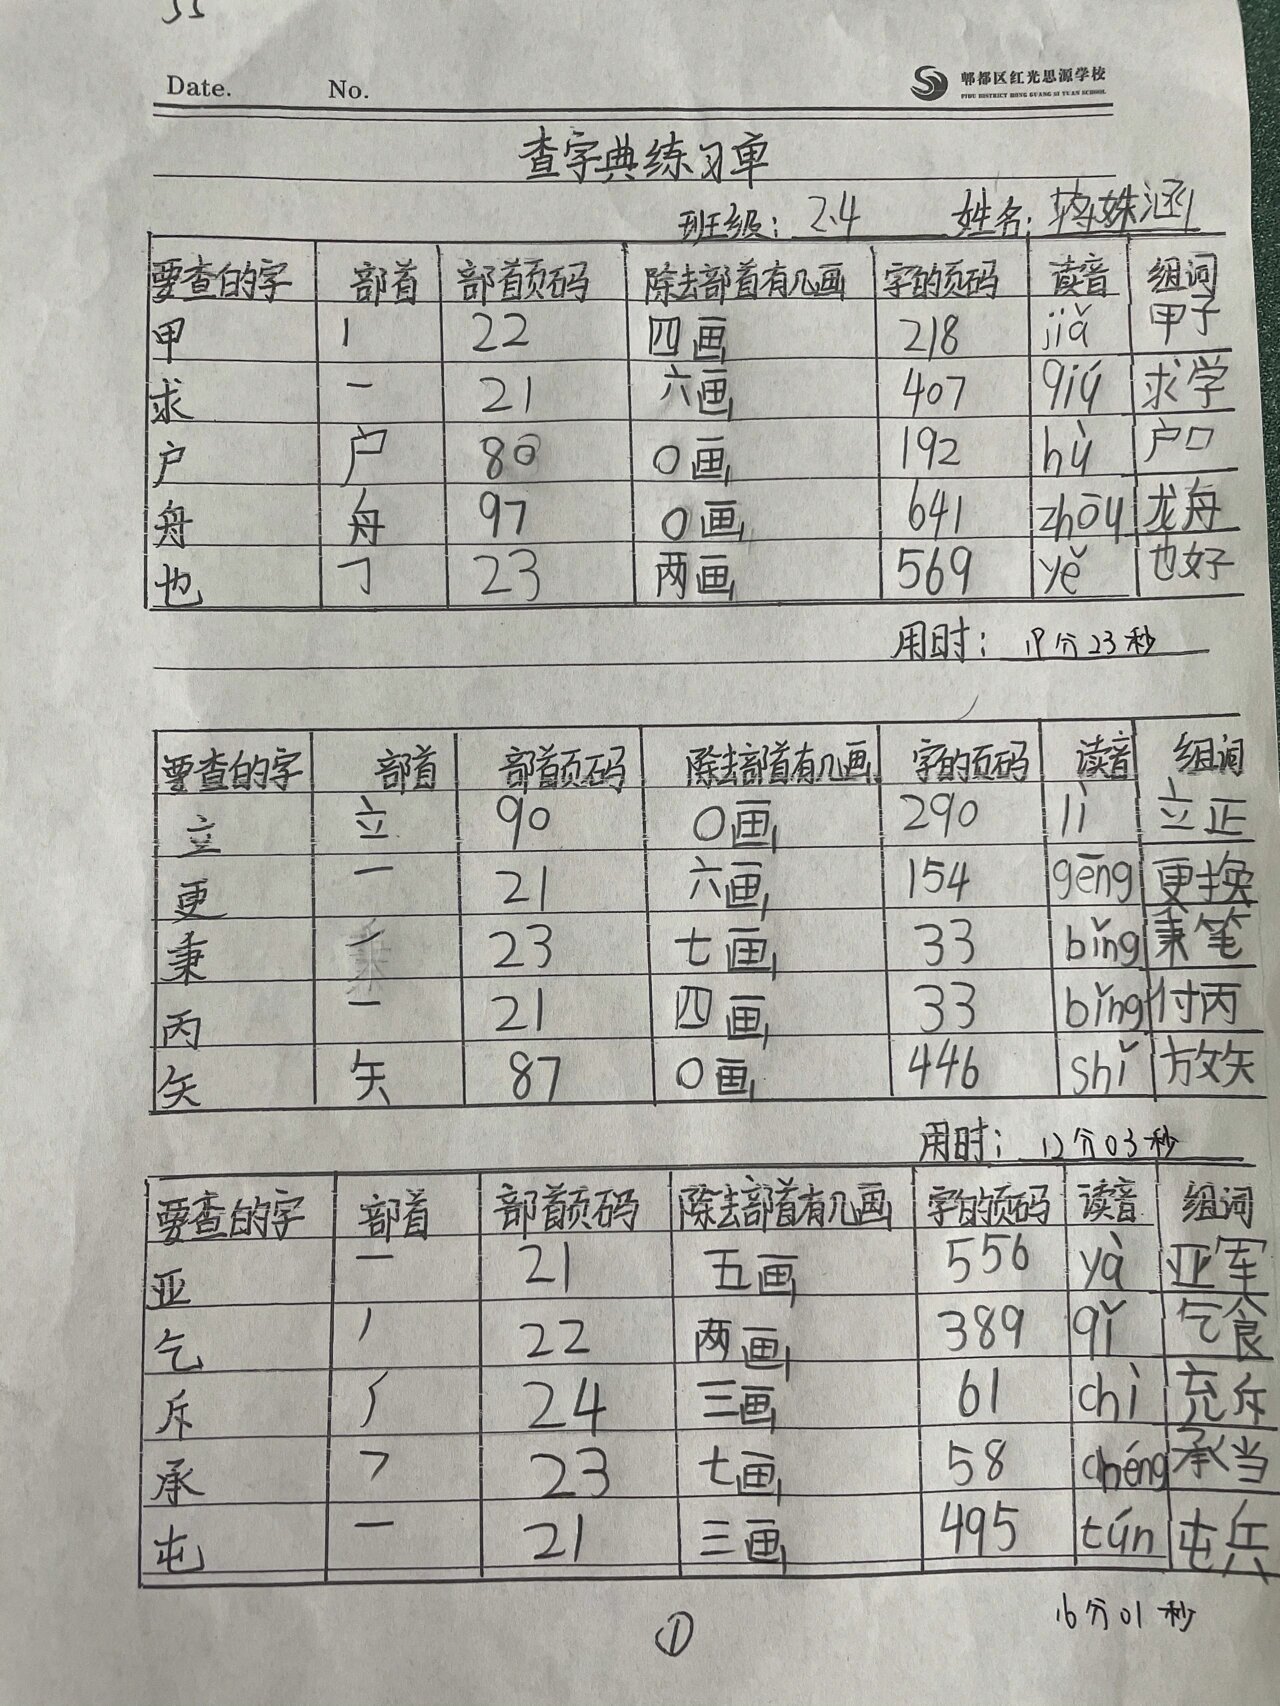 Date. No. 郫都区红光思源学校
PIDU DISTRICT HONG GUANG SI YUAN SCHOOL
查字典练习单
班级: 2.4 姓名: 蒋姝涵
要查的字 部首 部首页码 除去部首有几画 字的页码 读音 组词
甲 丨 22 四画 218 jiǎ 甲子
求 一 21 六画 407 qiú 求学
户 户 80 0画 192 hù 户口
舟 舟 97 0画 641 zhōu 龙舟
也 ㇆ 23 两画 569 yě 也好
用时: 19分23秒
要查的字 部首 部首页码 除去部首有几画 字的页码 读音 组词
立 立 90 0画 290 lì 立正
更 一 21 六画 154 gēng 更换
秉 丿 23 七画 33 bǐng 秉笔
丙 一 21 四画 33 bǐng 付丙
矢 矢 87 0画 446 shǐ 放矢
用时: 12分03秒
要查的字 部首 部首页码 除去部首有几画 字的页码 读音 组词
亚 一 21 五画 556 yà 亚军
乞 丿 22 两画 389 qǐ 乞食
斥 𠂆 24 三画 61 chì 充斥
承 乛 23 七画 58 chéng 承当
屯 一 21 三画 495 tún 屯兵
16分01秒
①